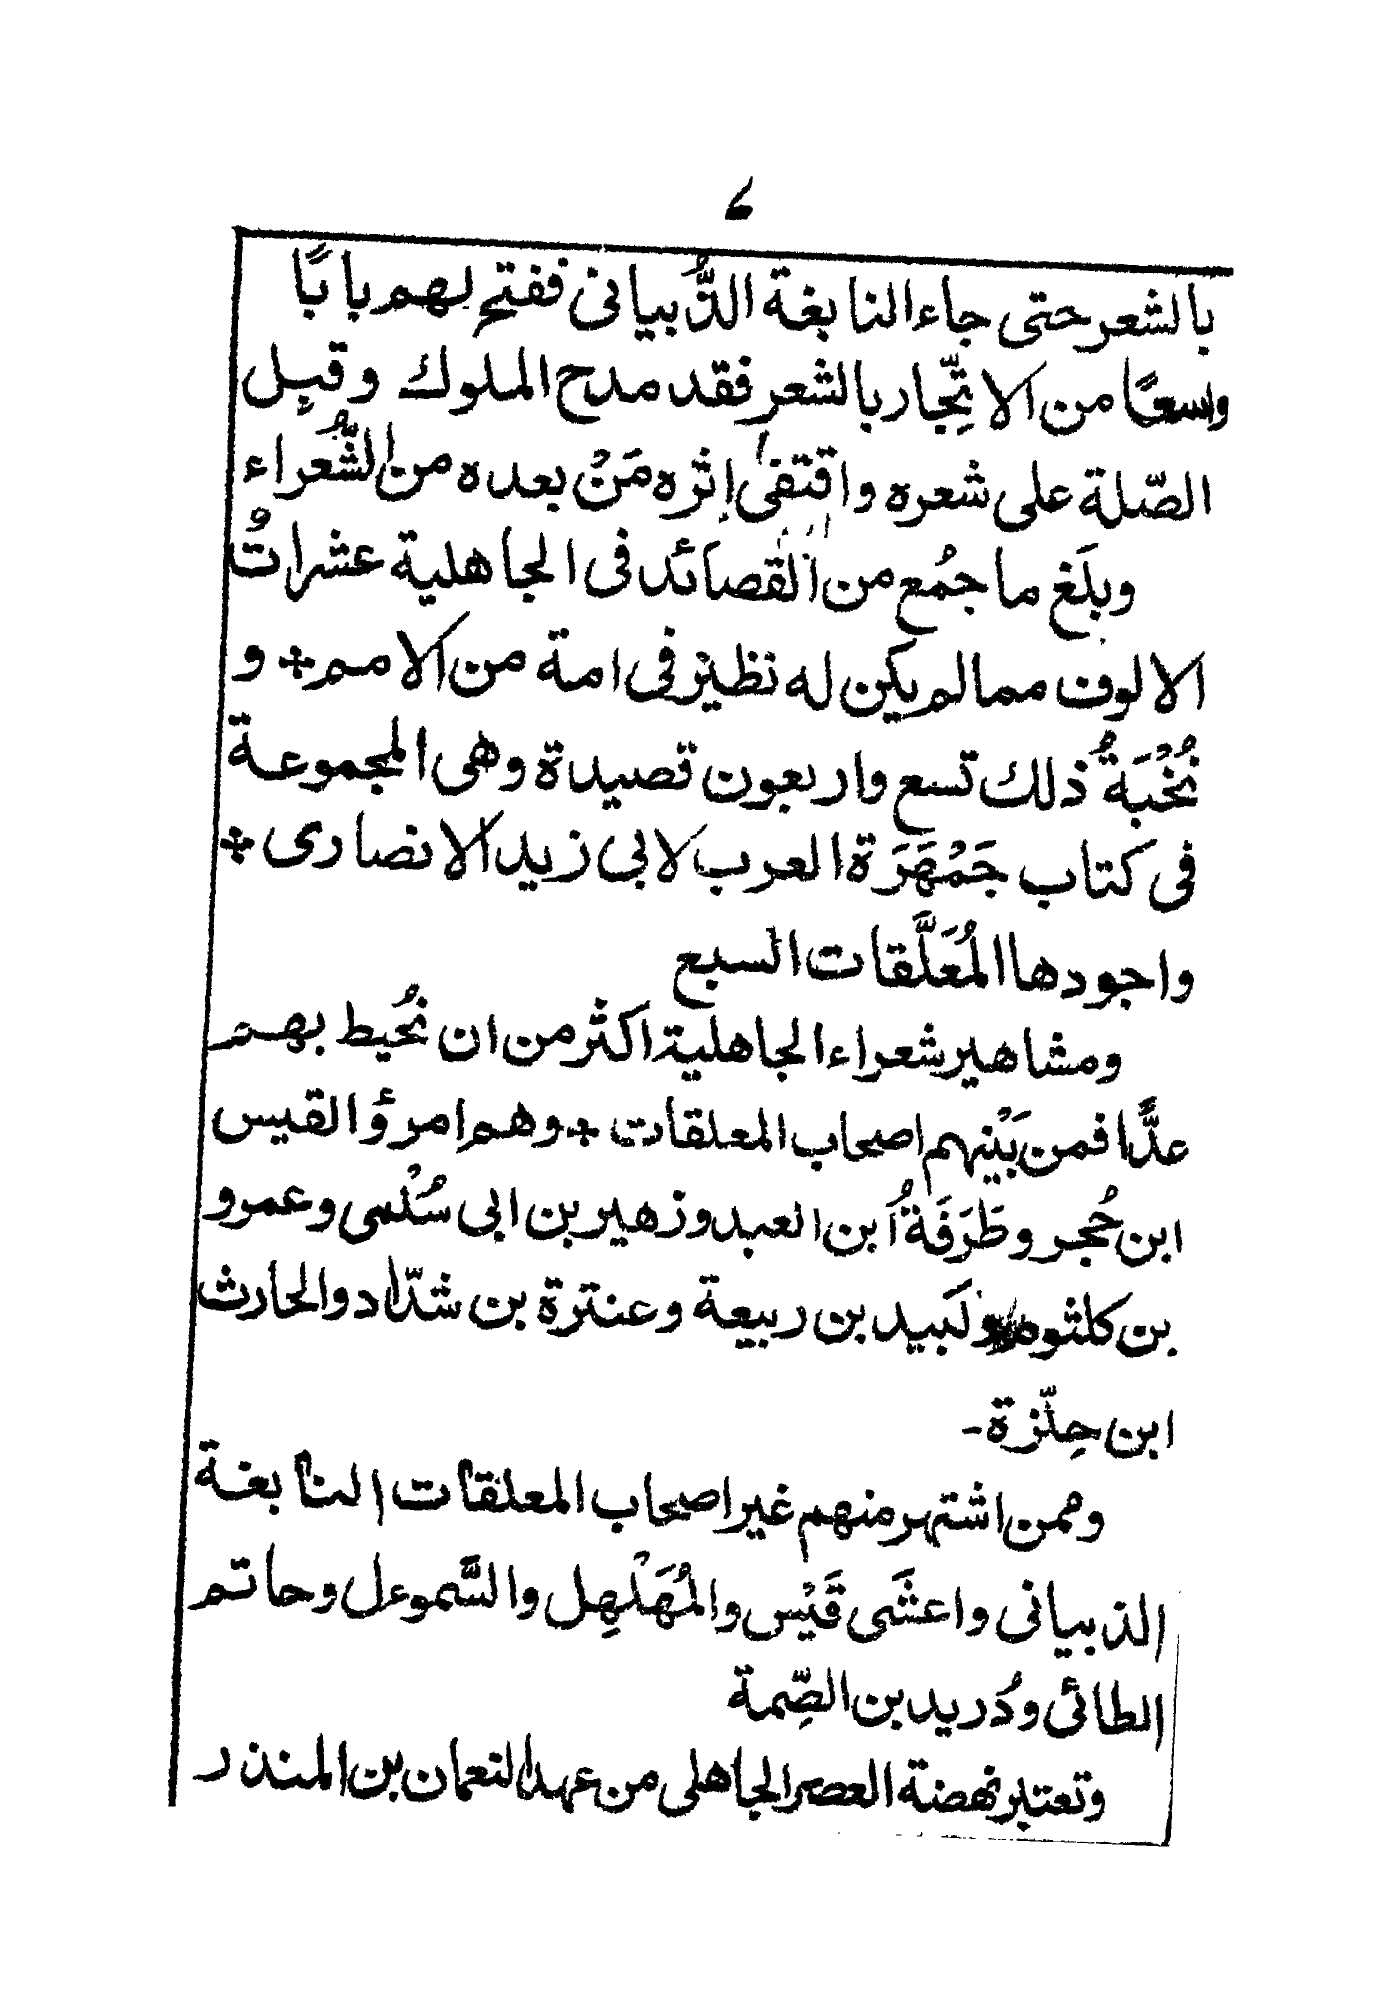 ۷
بالشعر حتى جاء النابغة الذُّبيانى ففتح لهم بابًا
واسعًا من الاتِّجار بالشعر فقد مدح الملوك وقبِل
الصّلة على شعره واقتفىٰ إثره مَنْ بعده من الشُّعراء
وبلَغ ما جمُع من القصائد فى الجاهلية عشراتُ
الالوف مما لم يكن له نظير فى امة من الامم ÷ و
نُخْبَةُ ذلك تسع واربعون قصيدة وهى المجموعة
فى كتاب جَمْهَرَة العرب لابى زيد الانصارى ÷
واجودها المُعَلَّقات السبع
ومشاهير شعراء الجاهلية اكثر من ان نحُيط بهم
عدًّا فمن بَيْنِهم اصحاب المعلقات ÷ وهم امرؤ القيس
ابن حُجر وطَرَفَةُ ابن العبد وزهير بن ابى سُلْمى وعمرو
بن كلثوم ولَبيد بن ربيعة وعنترة بن شدّاد والحارث
ابن حِلّزة ـ
وممن اشتهر منهم غير اصحاب المعلقات النابغة
الذبيانى واعشَى قَيْس والمُهَلْهِل والسَّموءل وحاتم
الطائى ودُريد بن الصِّمة
وتعتبر نهضة العصر الجاهلى من عهد النعمان بن المنذر